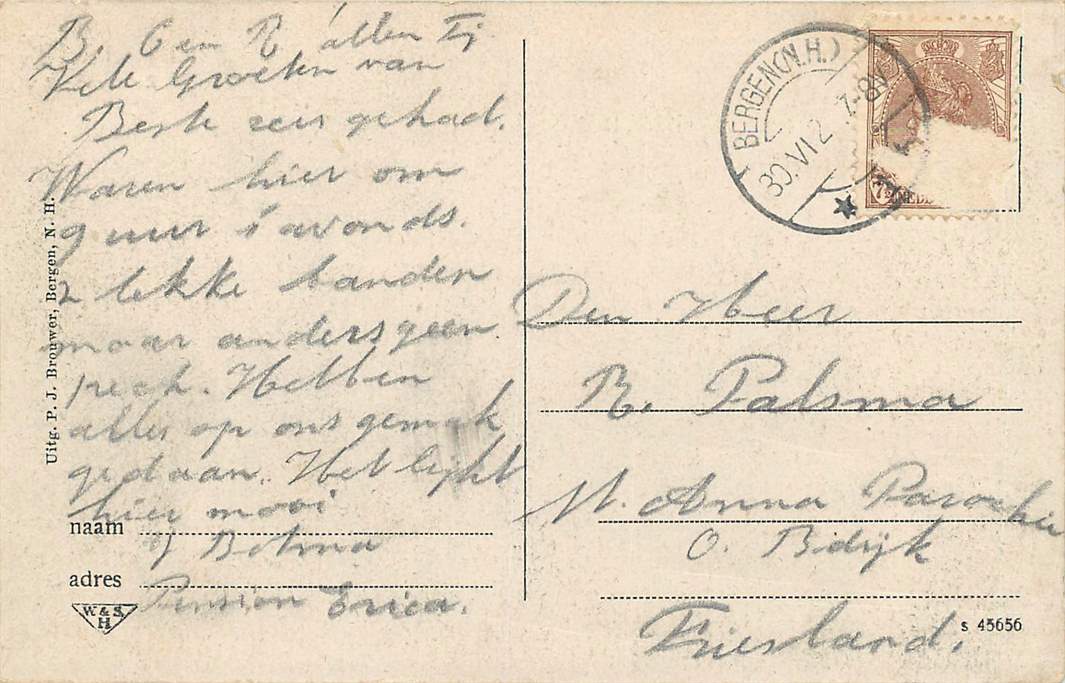 B. O en R allen Tj
Vele Groeten van
Beste reis gehad.
Waren hier om
9 uur s'avonds.
2 lekke banden
maar anders geen
pech. Hebben
alles op ons gemak
gedaan. Het lijkt
hier mooi
naam
J Bolma
adres
Pension Erica.
W & S
H
Uitg. P. J. Brouwer, Bergen, N. H.
BERGEN(N.H.)
30.VI 2 7-8N
7½ NED
Den Heer
R. Palsma
St. Anna Parochie
O. Bdijk
Friesland.
S 45656